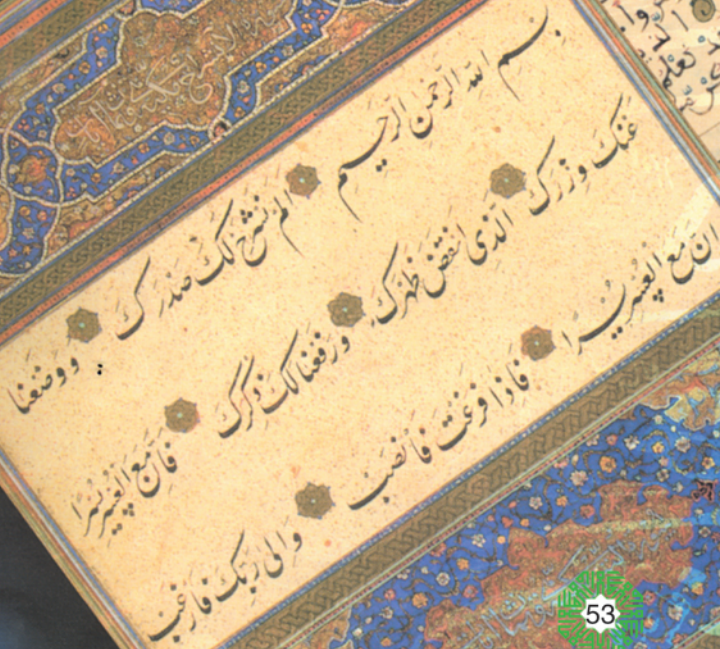 بسم الله الرحمن الرحیم الم نشرح لک صدرک ووضعنا
عنک وزرک الذی انقض ظهرک ورفعنا لک ذکرک فان مع العسر یسرا
ان مع العسر یسرا فاذا فرغت فانصب والی ربک فارغب
53